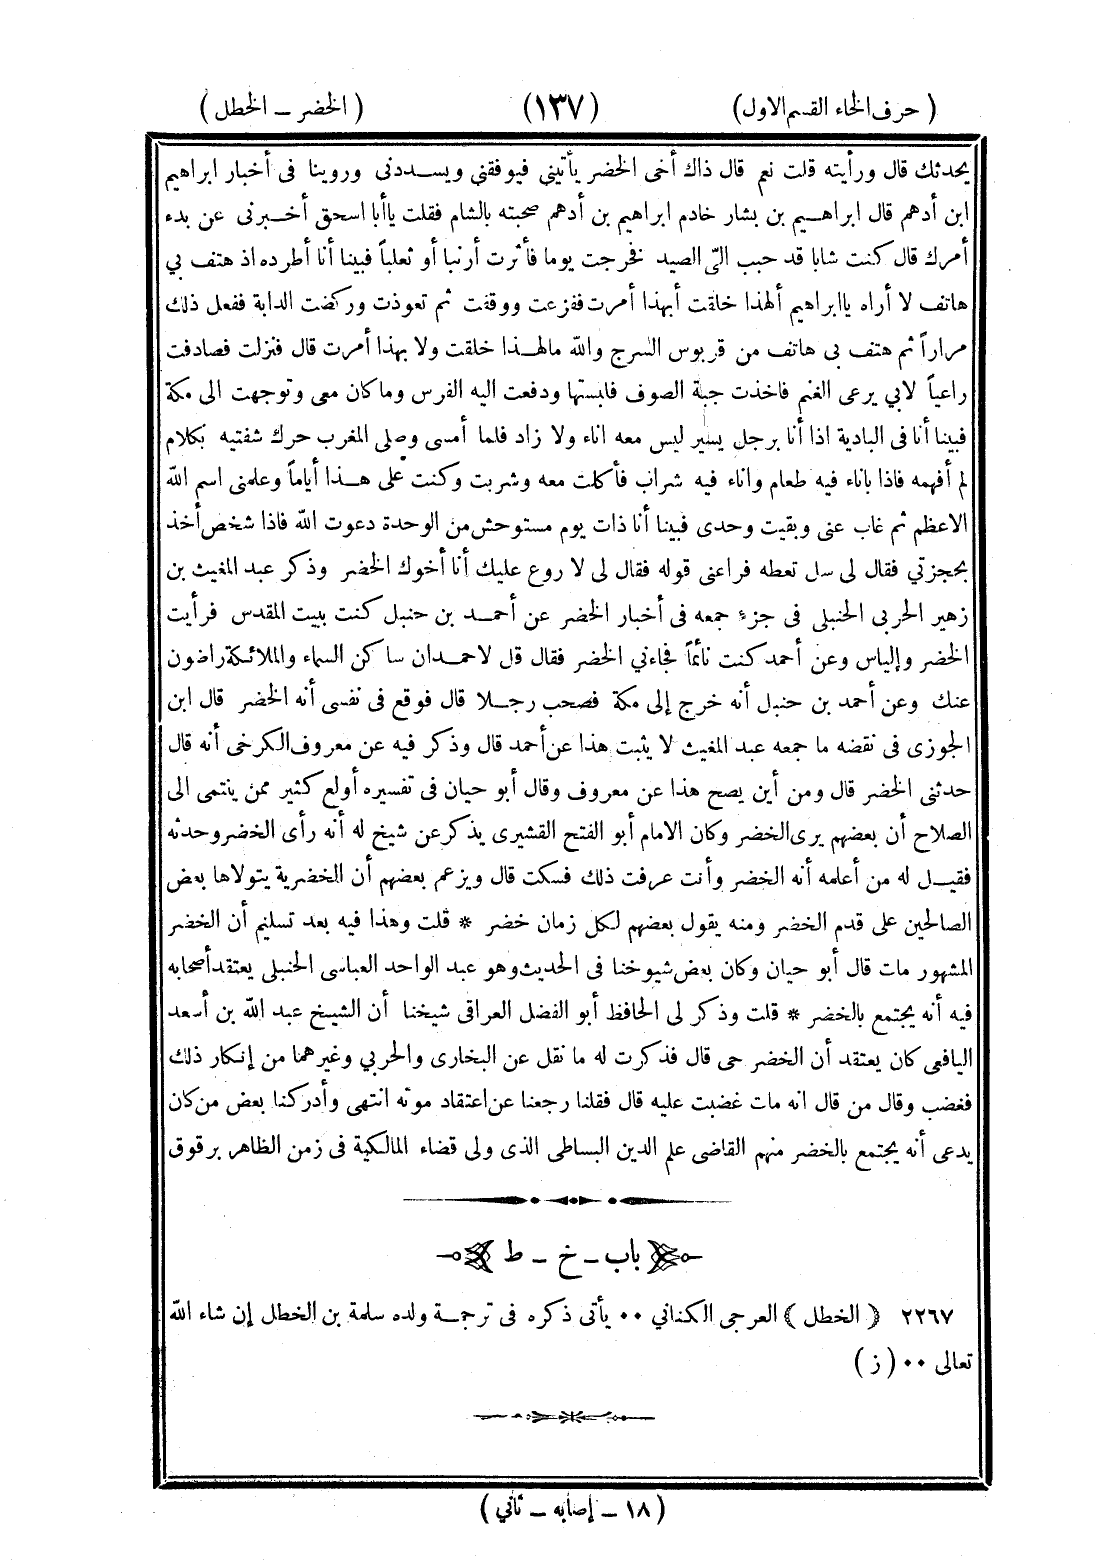 ( حرف الخاء القسم الاول)
(١٣٧)
( الخضر ــ الخطل )
يحدثك قال ورأيته قلت نعم قال ذاك أخى الخضر يأتيني فيوفقني ويسددنى وروينا فى أخبار ابراهيم
ابن أدهم قال ابراهيم بن بشار خادم ابراهيم بن أدهم صحبته بالشام فقلت ياأبا اسحق أخبرنى عن بدء
أمرك قال كنت شابا قد حبب الىّ الصيد فخرجت يوما فأثرت أرنبا أو ثعلباً فبينا أنا أطرده اذ هتف بي
هاتف لا أراه ياابراهيم ألهذا خلقت أبهذا أمرت ففزعت ووقفت ثم تعوذت وركضت الدابة ففعل ذلك
مراراً ثم هتف بى هاتف من قربوس السرج والله مالهذا خلقت ولا بهذا أمرت قال فنزلت فصادفت
راعياً لابي يرعى الغنم فاخذت جبة الصوف فلبستها ودفعت اليه الفرس وما كان معى وتوجهت الى مكة
فبينا أنا فى البادية اذا أنا برجل يسير ليس معه اناء ولا زاد فلما أمسى وصلى المغرب حرك شفتيه بكلام
لم أفهمه فاذا باناء فيه طعام واناء فيه شراب فأكلت معه وشربت وكنت على هذا أياماً وعلمنى اسم الله
الاعظم ثم غاب عنى وبقيت وحدى فبينا أنا ذات يوم مستوحش من الوحدة دعوت الله فاذا شخص أخذ
بحجزتي فقال لى سل تعطه فراعنى قوله فقال لى لا روع عليك أنا أخوك الخضر وذكر عبد المغيث بن
زهير الحربى الحنبلى فى جزء جمعه فى أخبار الخضر عن أحمد بن حنبل كنت ببيت المقدس فرأيت
الخضر وإلياس وعن أحمد كنت نائماً فجاءني الخضر فقال قل لاحمد ان ساكن السماء والملائكة راضون
عنك وعن أحمد بن حنبل أنه خرج إلى مكة فصحب رجلا قال فوقع فى نفسى أنه الخضر قال ابن
الجوزى فى نقضه ما جمعه عبد المغيث لا يثبت هذا عن أحمد قال وذكر فيه عن معروف الكرخى أنه قال
حدثنى الخضر قال ومن أين يصح هذا عن معروف وقال أبو حيان فى تفسيره أولع كثير ممن ينتمى الى
الصلاح أن بعضهم يرى الخضر وكان الامام أبو الفتح القشيرى يذكر عن شيخ له أنه رأى الخضر وحدثه
فقيل له من أعلمه أنه الخضر وأنت عرفت ذلك فسكت قال ويزعم بعضهم أن الخضرية يتولاها بعض
الصالحين على قدم الخضر ومنه يقول بعضهم لكل زمان خضر * قلت وهذا فيه بعد تسليم أن الخضر
المشهور مات قال أبو حيان وكان بعض شيوخنا فى الحديث وهو عبد الواحد العباسى الحنبلى يعتقد أصحابه
فيه أنه يجتمع بالخضر * قلت وذكر لى الحافظ أبو الفضل العراقى شيخنا أن الشيخ عبد الله بن أسعد
اليافعى كان يعتقد أن الخضر حى قال فذكرت له ما نقل عن البخارى والحربي وغيرهما من إنكار ذلك
فغضب وقال من قال انه مات غضبت عليه قال فقلنا رجعنا عن اعتقاد موته انتهى وأدركنا بعض من كان
يدعى أنه يجتمع بالخضر منهم القاضى علم الدين البساطى الذى ولى قضاء المالكية فى زمن الظاهر برقوق
باب ــ خ ــ ط
٢٢٦٧ ﴿ الخطل ﴾ العرجى الكناني ٠٠ يأتى ذكره فى ترجمة ولده سلمة بن الخطل إن شاء الله
تعالى ٠٠ ( ز )
( ١٨ ــ إصابه ــ ثاني )